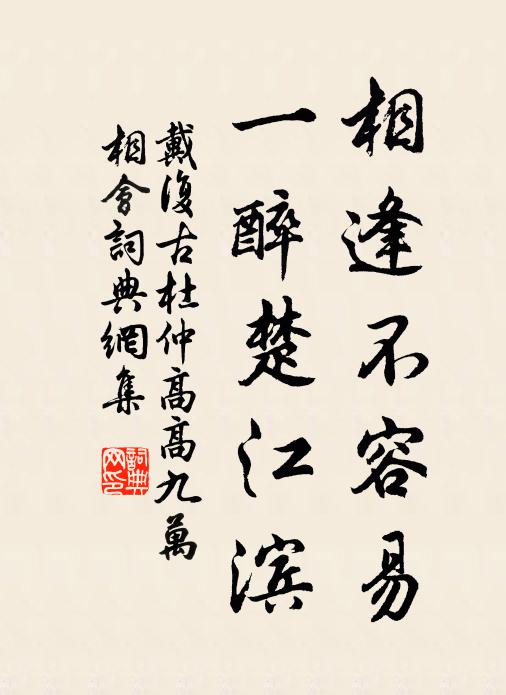 相逢不容易
一醉楚江滨
戴復古杜仲高高九萬
相會詞典網集
詞典网印